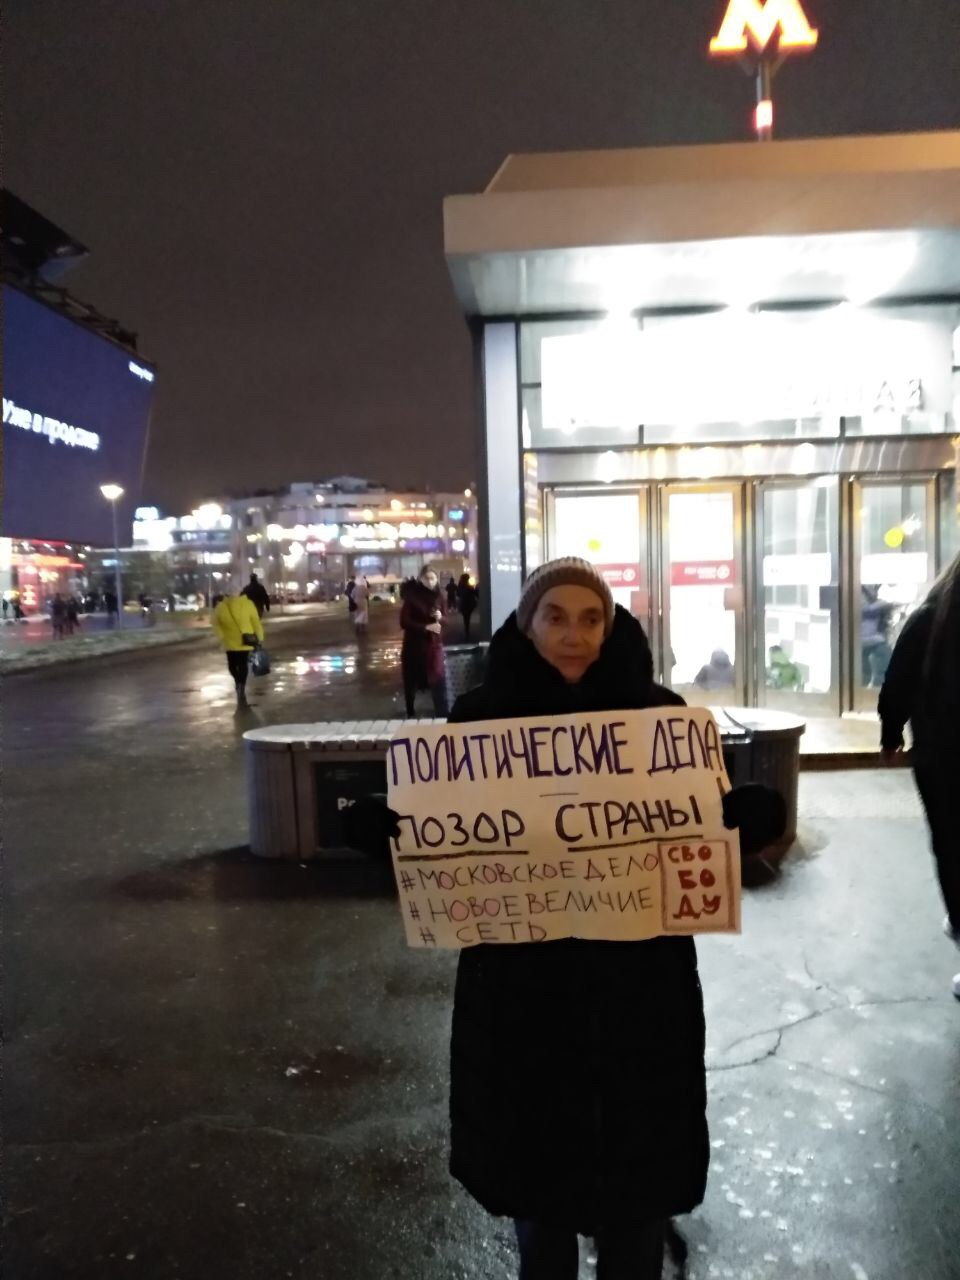 М
Уже в продаже
ПОЛИТИЧЕСКИЕ ДЕЛА
—
ПОЗОР СТРАНЫ!
#МОСКОВСКОЕ ДЕЛО
#НОВОЕ ВЕЛИЧИЕ
# СЕТЬ
СВО
БО
ДУ